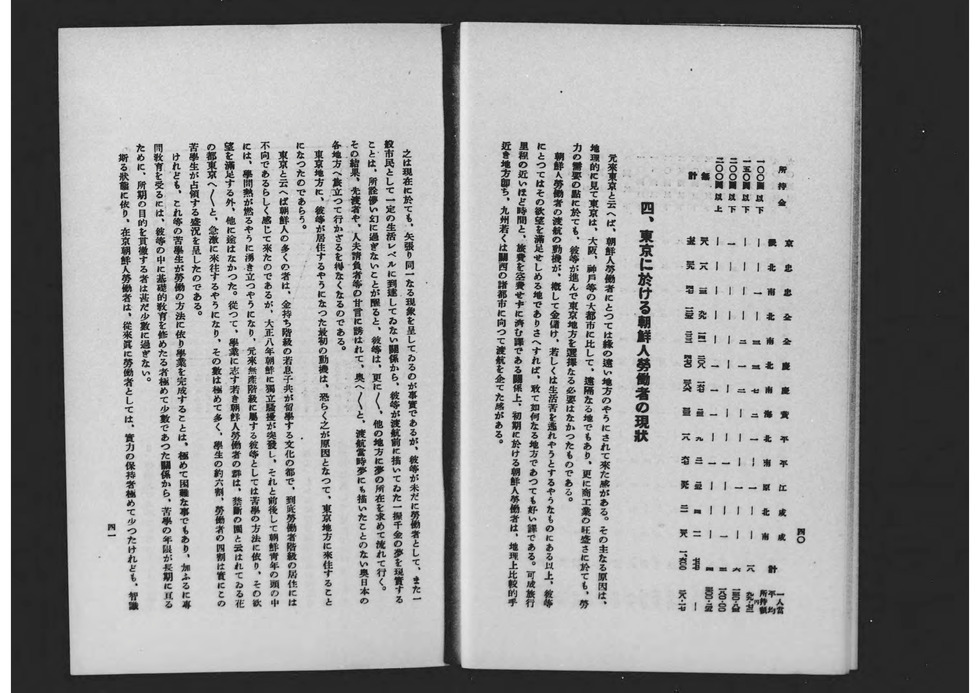 四〇
所持金 京畿 忠北 忠南 全北 全南 慶北 慶南 黃海 平北 平南 江原 咸北 咸南 計 一人當平均所持額
一〇〇圓以下
一五〇圓以下
二〇〇圓以下
二〇〇圓以上
無
計
四、東京に於ける朝鮮人勞働者の現狀
元來東京と云へば、朝鮮人勞働者にとつては緣の遠い地方のやうにされて來た感がある。その主なる原因は、
地理的に見て東京は、大阪、神戸等の大都市に比して、遠隔なる地でもあり、更に商工業の旺盛さに於ても、勞
力の需要の點に於ても、彼等が進んで東京地方を選擇なる必要はなかつたものである。
朝鮮人勞働者の渡航の動機が、概して金儲け、若しくは生活苦を逃れやうとするやうなものにある以上、彼等
にとつてはその欲望を滿足せしめる地でありさへすれば、敢て如何なる地方であつても好い譯である。可成旅行
里程の近いほど時間と、旅費を空費せずに濟む譯である關係上、初期に於ける朝鮮人勞働者は、地理上比較的手
近き地方卽ち、九州若くは關西の諸都市に向つて渡航を企てた感がある。
之は現在に於ても、矢張り同一なる現象を呈してゐるのが事實であるが、彼等が未だに勞働者として、また一
般市民として一定の生活レベルに到達してゐない關係から、彼等が渡航前に描いてゐた一攫千金の夢を現實する
ことは、所詮儚い幻に過ぎないことが醒ると、彼等は、更に〱、他の地方に夢の所在を求めて流れて行く。
その結果、先渡者や、人夫請負者等の甘言に誘はれて、奧へ〱と、渡航當時夢にも描いたことのない奧日本の
各地方へ旅立つて行かざるを得なくなるのである。
東京地方に、彼等が居住するやうになつた最初の動機は、恐らく之が原因となつて、東京地方に來住すること
になつたのであらう。
東京と云へば朝鮮人の多くの者は、金持ち階級の若息子共が留學する文化の都で、到底勞働者階級の居住には
不向であるらしく感じて來たのであるが、大正八年朝鮮に獨立騷擾が突發し、それと前後して朝鮮靑年の頭の中
には、學問熱が燃るやうに湧き立つやうになり、元來無產階級に屬する彼等としては苦學の方法に依り、その欲
望を滿足する外、他に途はなかつた。從つて、學業に志す若き朝鮮人勞働者の群は、禁斷の園と云はれてゐる花
の都東京へ〱と、急激に來往するやうになり、その數は極めて多く、學生の約六割、勞働者の四割は實にこの
苦學生が占領する盛況を呈したのである。
けれども、これ等の苦學生が勞働の方法に依り學業を完成することは、極めて困難な事でもあり、加ふるに專
問敎育を受るには、彼等の中に基礎的敎育を修めたる者極めて少數であつた關係から、苦學の年限が長期に亘る
ために、所期の目的を貫徹する者は甚だ少數に過ぎない。
斯る狀態に依り、在京朝鮮人勞働者は、從來眞に勞働者としては、實力の保持者極めて少つたけれども、智識
四一